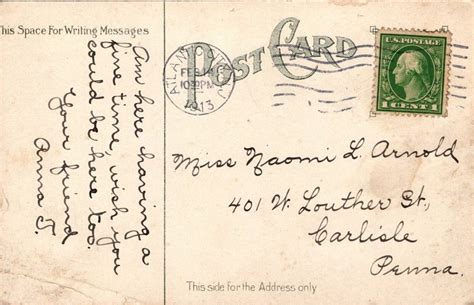 This Space For Writing Messages
POST CARD
Am here having a
fine time, wish you
could be here too.
Your friend
Anna J.
ATLANTIC CITY, N.J.
FEB
1913
U.S. POSTAGE
1 CENT 1
Miss Naomi L. Arnold
401 W. Louther St.,
Carlisle
Penna.
This side for the Address only